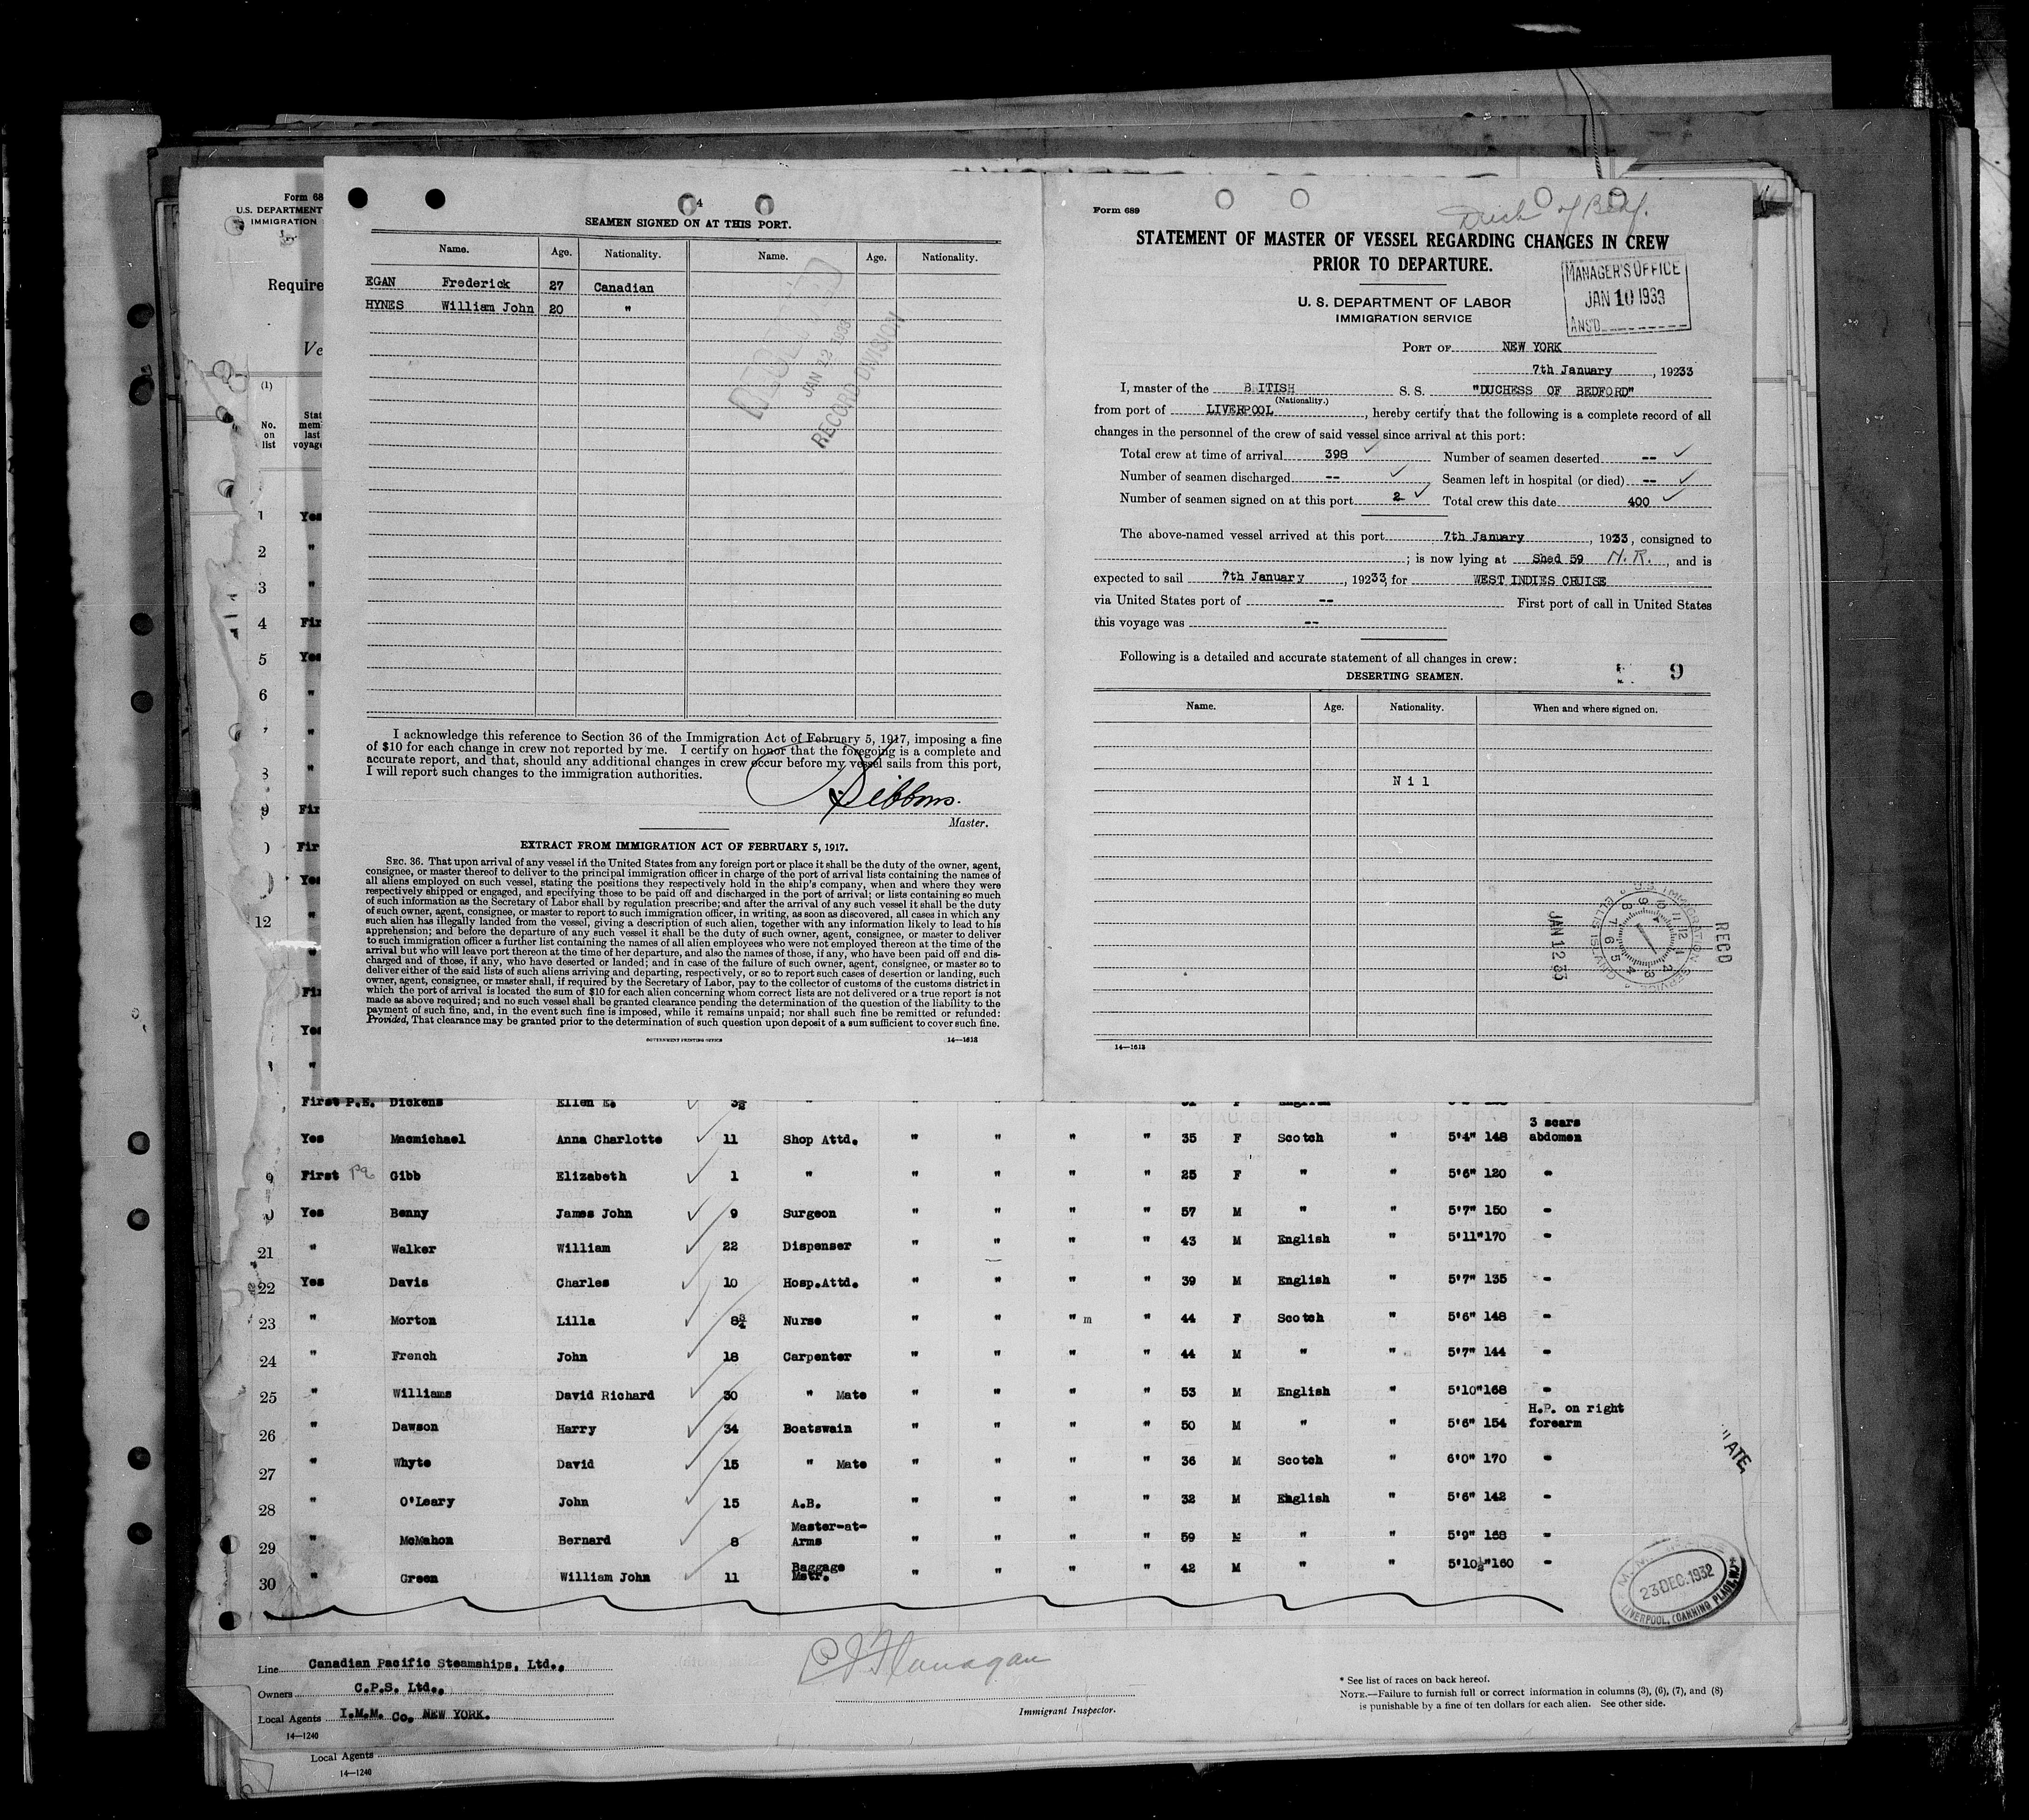 Form 68
U.S. DEPARTMENT
IMMIGRATION
Require
Ve
(1)
No.
on
list
4
SEAMEN SIGNED ON AT THIS PORT.
Name. Age. Nationality. Name. Age. Nationality.
EGAN Frederick 27 Canadian
HYNES William John 20 "
JAN 12 1933
RECORD DIVISION
I acknowledge this reference to Section 36 of the Immigration Act of February 5, 1917, imposing a fine
of $10 for each change in crew not reported by me. I certify on honor that the foregoing is a complete and
accurate report, and that, should any additional changes in crew occur before my vessel sails from this port,
I will report such changes to the immigration authorities.
Sibbons.
Master.
EXTRACT FROM IMMIGRATION ACT OF FEBRUARY 5, 1917.
SEC. 36. That upon arrival of any vessel in the United States from any foreign port or place it shall be the duty of the owner, agent,
consignee, or master thereof to deliver to the principal immigration officer in charge of the port of arrival lists containing the names of
all aliens employed on such vessel, stating the positions they respectively hold in the ship's company, when and where they were
respectively shipped or engaged, and specifying those to be paid off and discharged in the port of arrival; or lists containing so much
of such information as the Secretary of Labor shall by regulation prescribe; and after the arrival of any such vessel it shall be the duty
of such owner, agent, consignee, or master to report to such immigration officer, in writing, as soon as discovered, all cases in which any
such alien has illegally landed from the vessel, giving a description of such alien, together with any information likely to lead to his
apprehension; and before the departure of any such vessel it shall be the duty of such owner, agent, consignee, or master to deliver
to such immigration officer a further list containing the names of all alien employees who were not employed thereon at the time of the
arrival but who will leave port thereon at the time of her departure, and also the names of those, if any, who have been paid off and dis-
charged and of those, if any, who have deserted or landed; and in case of the failure of such owner, agent, consignee, or master so to
deliver either of the said lists of such aliens arriving and departing, respectively, or so to report such cases of desertion or landing, such
owner, agent, consignee, or master shall, if required by the Secretary of Labor, pay to the collector of customs of the customs district in
which the port of arrival is located the sum of $10 for each alien concerning whom correct lists are not delivered or a true report is not
made as above required; and no such vessel shall be granted clearance pending the determination of the question of the liability to the
payment of such fine, and, in the event such fine is imposed, while it remains unpaid; nor shall such fine be remitted or refunded:
Provided, That clearance may be granted prior to the determination of such question upon deposit of a sum sufficient to cover such fine.
GOVERNMENT PRINTING OFFICE 14—1613
Form 689
Duch of Bedf.
STATEMENT OF MASTER OF VESSEL REGARDING CHANGES IN CREW
PRIOR TO DEPARTURE.
MANAGER'S OFFICE
JAN 10 1933
ANS'D
U. S. DEPARTMENT OF LABOR
IMMIGRATION SERVICE
PORT OF NEW YORK
7th January, 19233
I, master of the B ITISH S. S. "DUCHESS OF BEDFORD"
(Nationality.)
from port of LIVERPOOL, hereby certify that the following is a complete record of all
changes in the personnel of the crew of said vessel since arrival at this port:
Total crew at time of arrival 398 Number of seamen deserted --
Number of seamen discharged -- Seamen left in hospital (or died) --
Number of seamen signed on at this port 2 Total crew this date 400
The above-named vessel arrived at this port 7th January, 1933, consigned to
; is now lying at Shed 59 N.R., and is
expected to sail 7th January, 19233, for WEST INDIES CRUISE
via United States port of -- First port of call in United States
this voyage was --
Following is a detailed and accurate statement of all changes in crew:
9
DESERTING SEAMEN.
Name. Age. Nationality. When and where signed on.
Nil
REC'D
U.S. IMMIGRATION SERVICE
ELLIS ISLAND
JAN 12 33
14—1613
1 Yes
2 "
3 "
4 Fir
5 Yes
6 "
7 "
8 "
9 Fir
Fir
Yes
12 "
"
Fir
Yes
"
First P.E. Dickens Ellen E. 3½ "
Yes Macmichael Anna Charlotte 11 Shop Attd. " " " " 35 F Scotch " 5'4" 148 3 scars abdomen
9 First Gibb Elizabeth 1 " " " " " 25 F " " 5'6" 120 -
0 Yes Benny James John 9 Surgeon " " " " 57 M " " 5'7" 150 -
21 " Walker William 22 Dispenser " " " " 43 M English " 5'11" 170 -
22 Yes Davis Charles 10 Hosp.Attd. " " " " 39 M English " 5'7" 135 -
23 " Morton Lilla 8¾ Nurse " " " m " 44 F Scotch " 5'6" 148 -
24 " French John 18 Carpenter " " " " 44 M " " 5'7" 144 -
25 " Williams David Richard 30 " Mate " " " " 53 M English " 5'10" 168 -
26 " Dawson Harry 34 Boatswain " " " " 50 M " " 5'6" 154 H.P. on right forearm
27 " Whyte David 15 " Mate " " " " 36 M Scotch " 6'0" 170 -
28 " O'Leary John 15 A.B. " " " " 32 M English " 5'6" 142 -
29 " McMahon Bernard 8 Master-at-Arms " " " " 59 M " " 5'9" 168 -
30 " Green William John 11 Baggage Mstr. " " " " 42 M " " 5'10½" 160 -
23 DEC. 1932
LIVERPOOL, (CANNING PLACE)
Line Canadian Pacific Steamships, Ltd.,
Owners C.P.S. Ltd.,
Local Agents I.M.M. Co. NEW YORK.
14—1240
Flanagan
Immigrant Inspector.
* See list of races on back hereof.
NOTE.—Failure to furnish full or correct information in columns (3), (6), (7), and (8)
is punishable by a fine of ten dollars for each alien. See other side.
Local Agents
14—1240